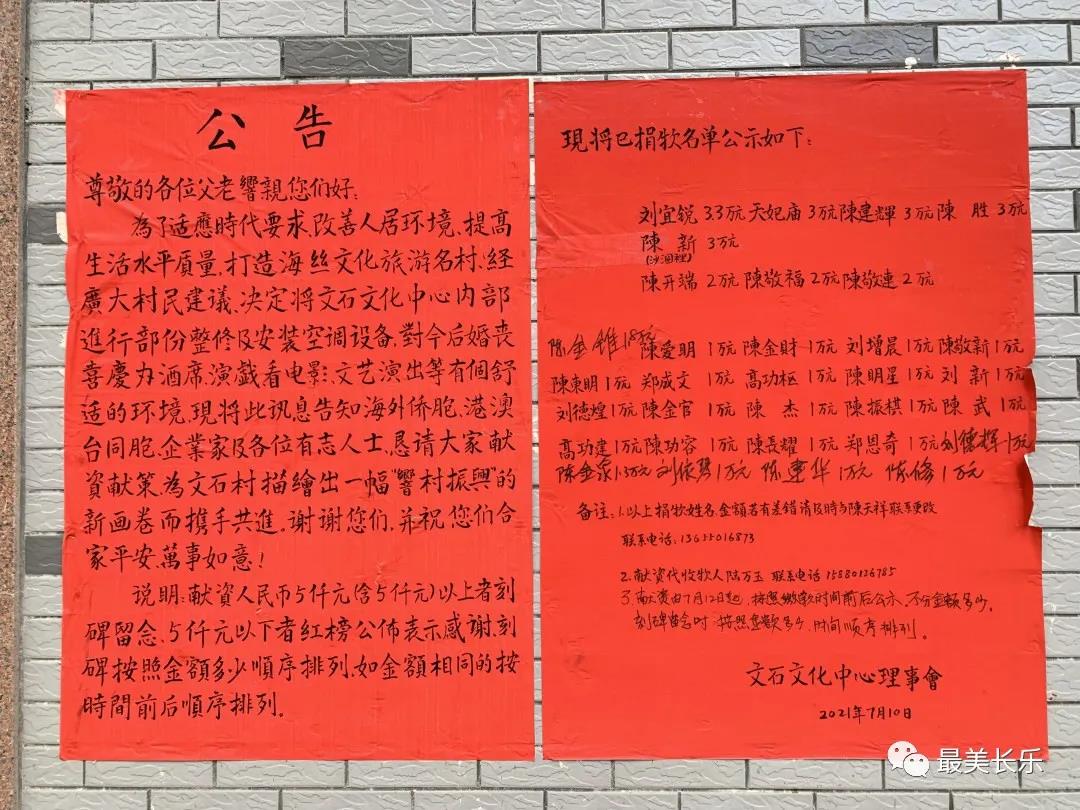 公告
尊敬的各位父老響親您们好:
為了适應時代要求,改善人居环境,提高
生活水平质量,打造海丝文化旅游名村,经
廣大村民建议,决定将文石文化中心内部
進行部份整修及安装空调设备,對今后婚丧
喜慶办酒席,演戲看电影,文艺演出等有個舒
适的环境,現将此讯息告知海外侨胞,港澳
台同胞,企業家及各位有志人士,恳请大家献
資献策,為文石村描繪出一幅“響村振興”的
新画卷而携手共進。谢谢您们,并祝您们合
家平安,萬事如意!
说明:献資人民币5仟元(含5仟元)以上者刻
碑留念,5仟元以下者红榜公佈表示感谢,刻
碑按照金額多少順序排列,如金額相同的按
時間前后順序排列。
現将已捐款名单公示如下:
刘宜锐3.3万元 天妃庙3万元 陳建輝3万元 陳胜3万元
陳新3万元
(沙洄裡)
陳开端2万元 陳敬福2万元 陳敬連2万元
陈金雄1.8万元 陳爱明1万元 陳金财1万元 刘增晨1万元 陳敬新1万元
陳東明1万元 郑成文1万元 高功枢1万元 陳明星1万元 刘新1万元
刘德煌1万元 陳金官1万元 陳杰1万元 陳振棋1万元 陳武1万元
高功建1万元 陳功容1万元 陳長耀1万元 郑恩奇1万元 刘德辉1万元
陈金泉1.5万元 1万元 陈建华1万元 陈修1万元
备注:1.以上捐款姓名,金額若有差错请及時与陳天祥联系更改
联系电话:13655016873
2.献资代收款人陆万玉 联系电话15880136785
3.献资由7月12日起,按照缴款时间前后公示,不分金额多少。
刻碑留念时,按照金额多少,时间順序排列。
文石文化中心理事會
2021年7月10日
最美长乐